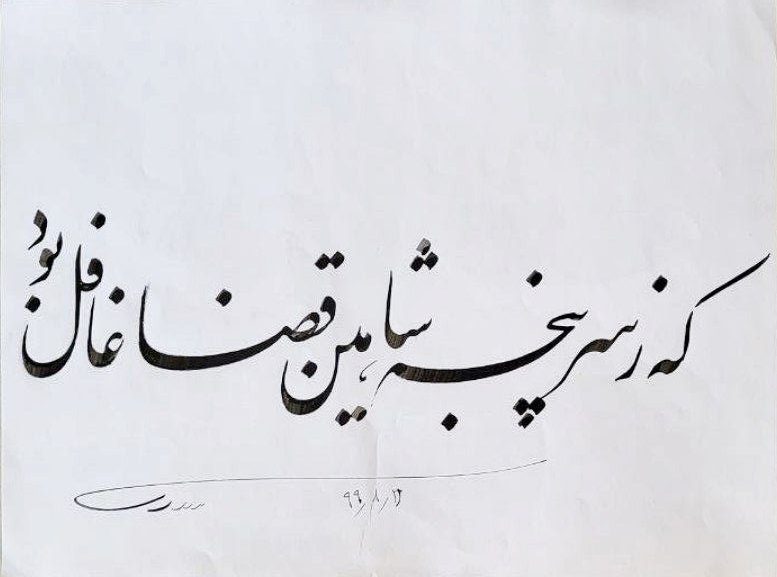 که ز سرپنجه شاهین قضا غافل بود
۹۹/۸/